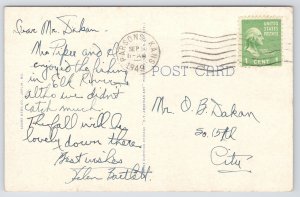 Dear Mr. Dakan.
Mr. Piper and I
enjoyed the fishing
in Elk River
altho we didn't
catch much.
The fall will be
lovely down there
Best wishes
Helen Bartlett
PARSONS, KANS.
SEP
1949
POST CARD
UNITED STATES
POSTAGE
1 CENT 1
Mr. O. B. Dakan
So. 15th
City